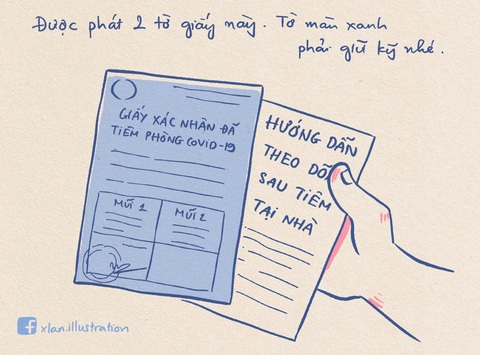 Được phát 2 tờ giấy này. Tờ màu xanh
phải giữ kỹ nhé.
GIẤY XÁC NHẬN ĐÃ
TIÊM PHÒNG COVID-19
MŨI 1
MŨI 2
HƯỚNG DẪN
THEO DÕI
SAU TIÊM
TẠI NHÀ
xlan.illustration